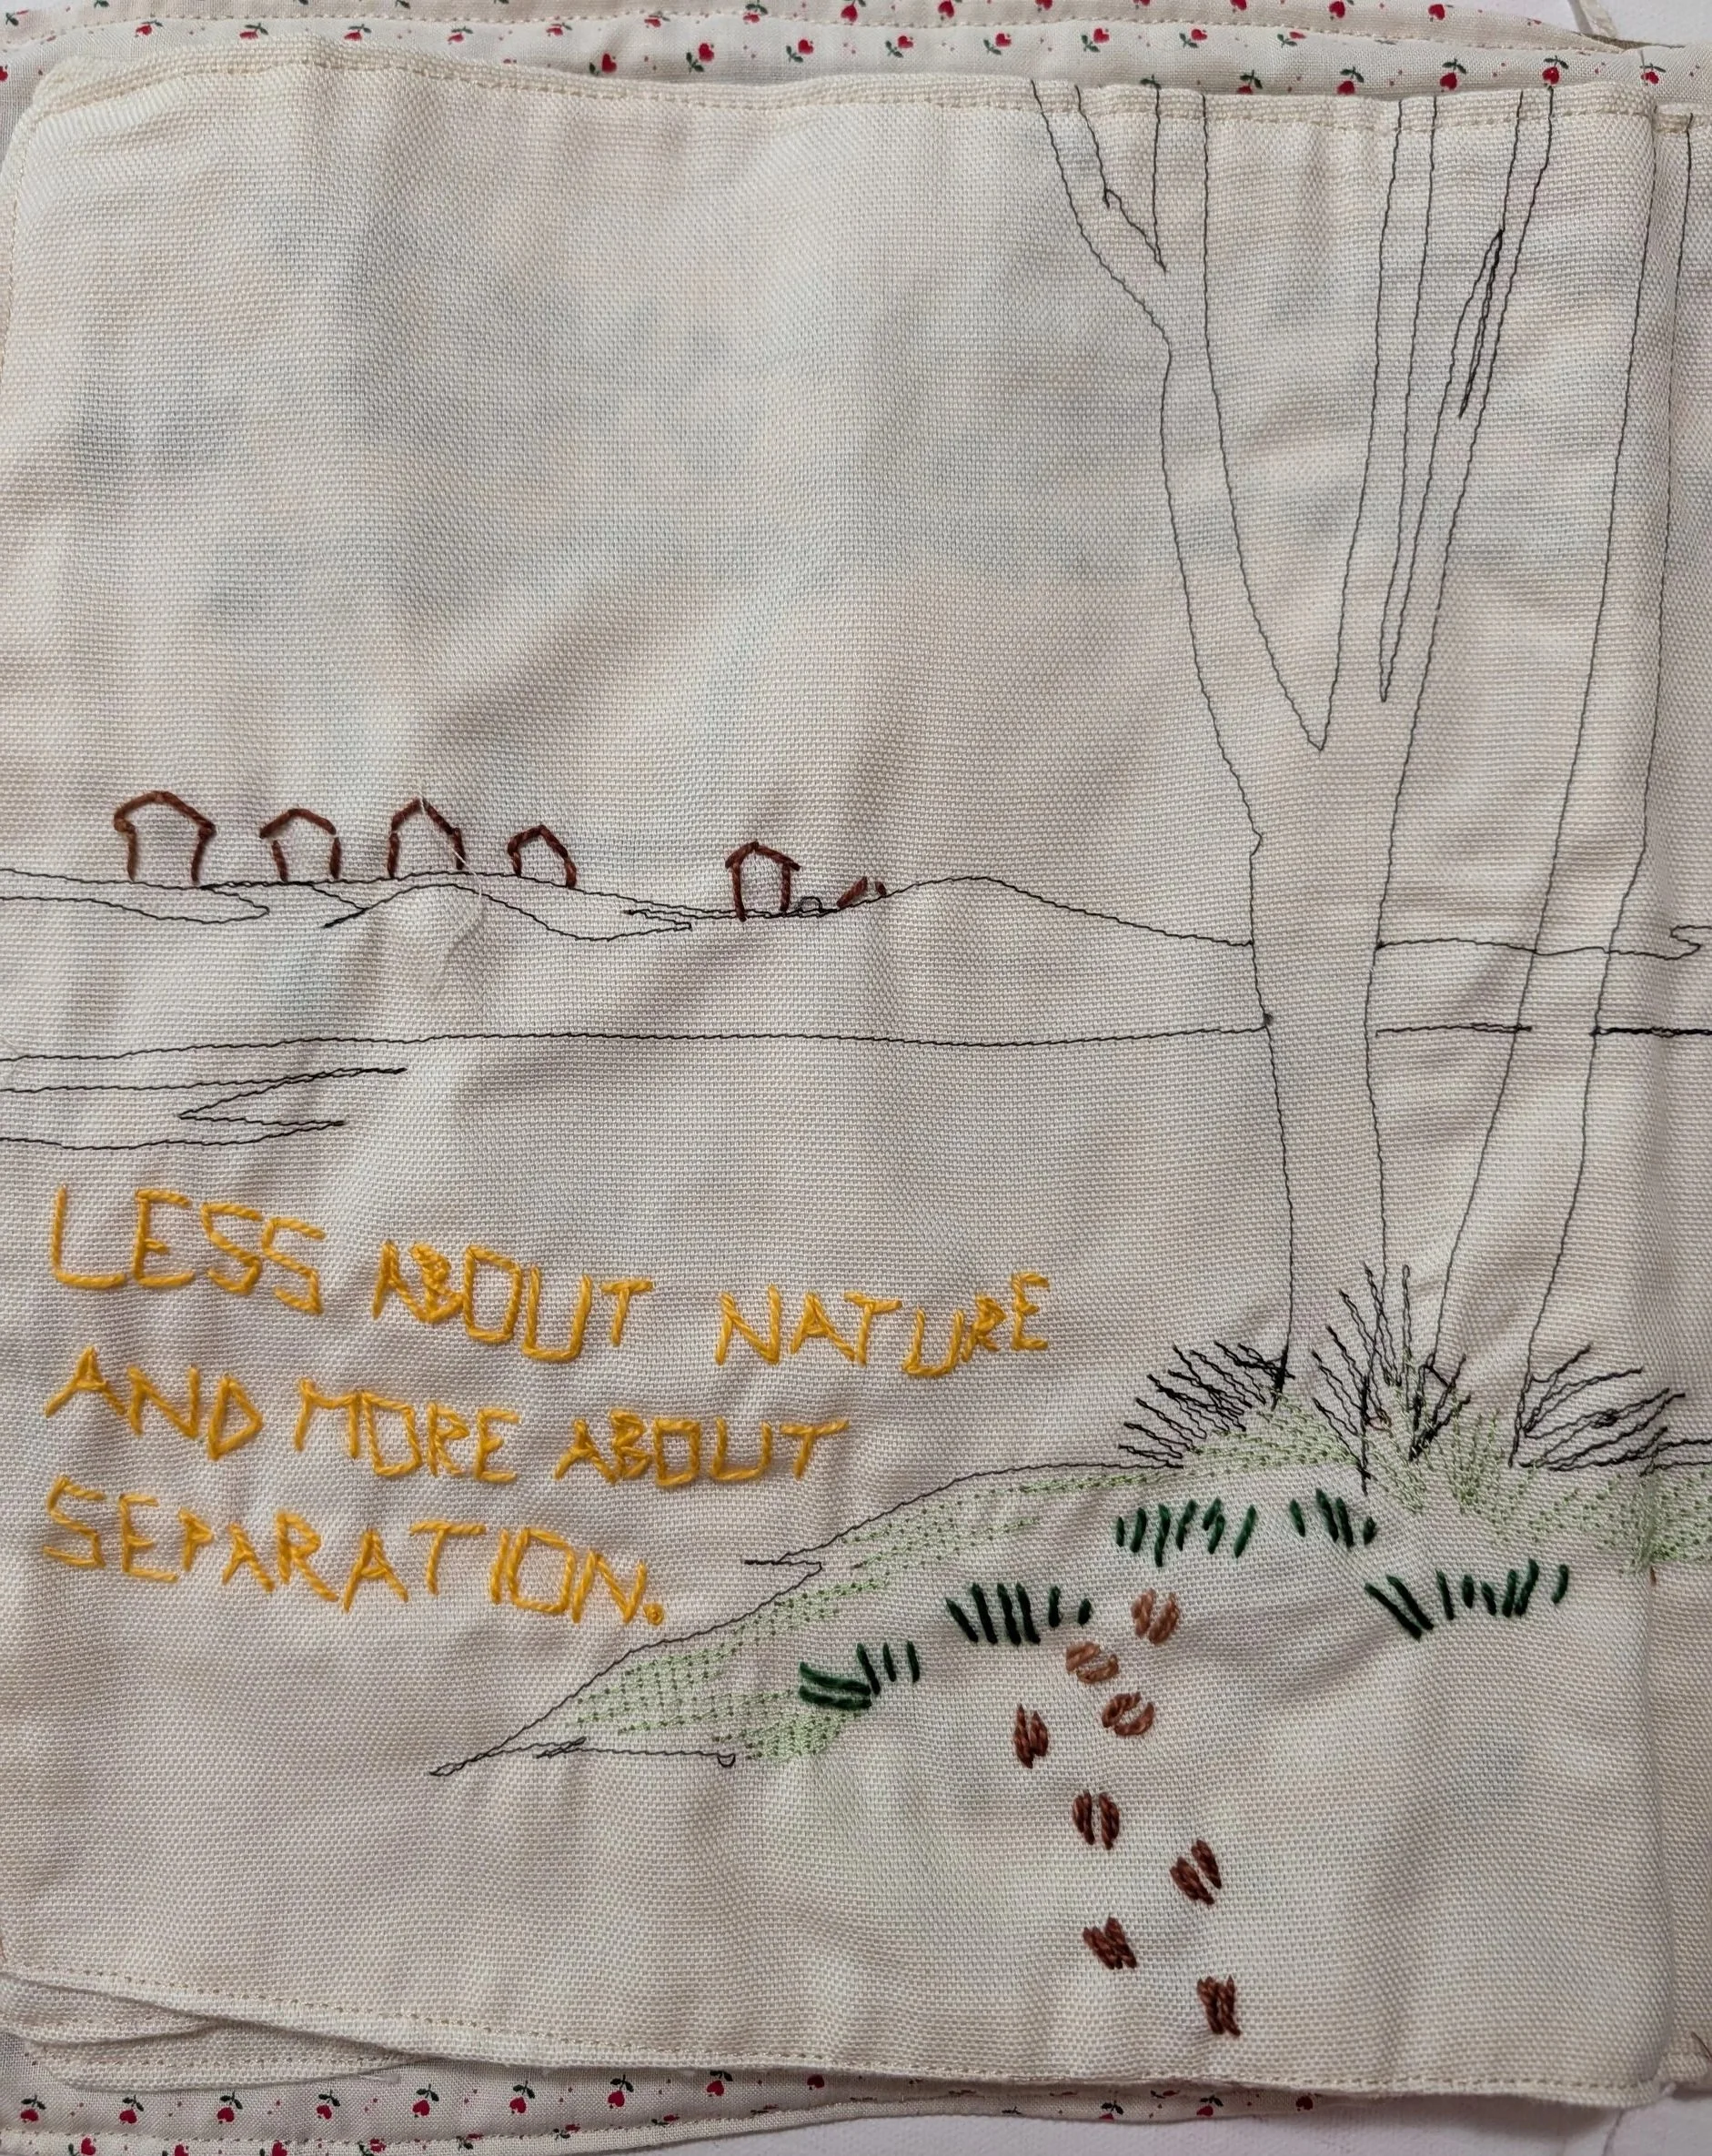 LESS ABOUT NATURE
AND MORE ABOUT
SEPARATION.